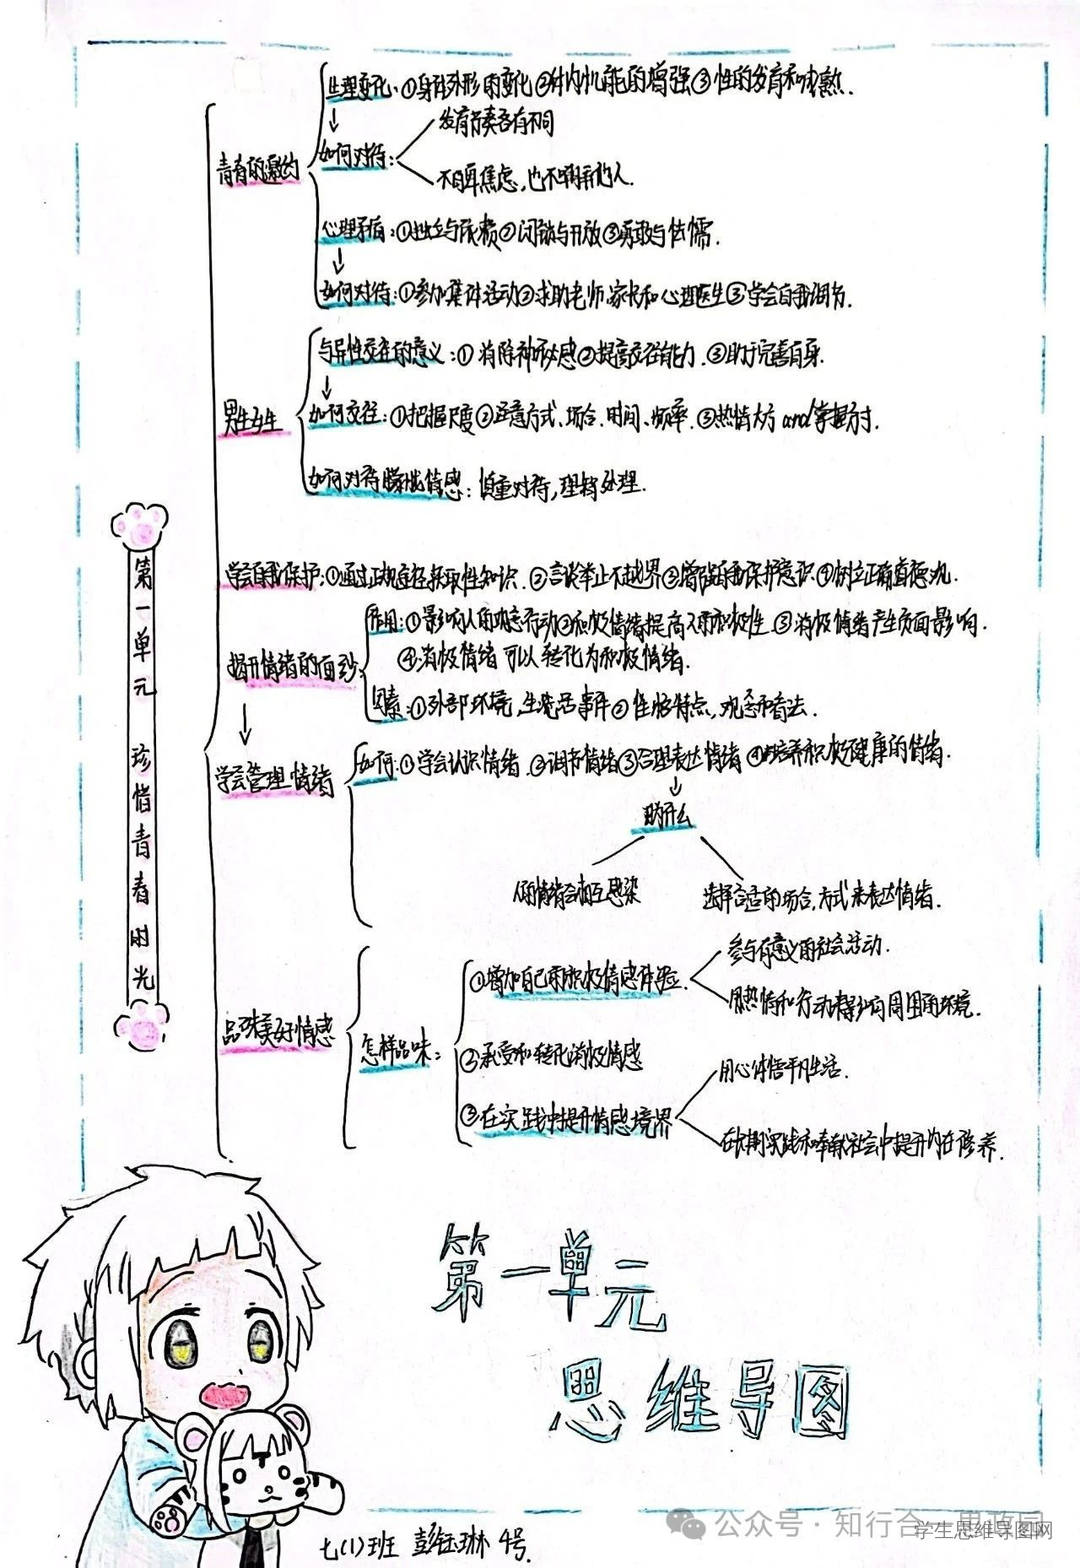 生理变化:①身体外形的变化②体内机能的增强③性的发育和成熟.
青春的邀约
如何对待:
发育节奏各有不同
不自卑焦虑,也不嘲弄他人.
心理矛盾:①独立与依赖②闭锁与开放③勇敢与怯懦.
如何对待:①参加集体活动②求助老师家长和心理医生③学会自我调节.
男生女生
与异性交往的意义:①消除神秘感②提高交往能力.③助于完善自身.
如何交往:①把握尺度②注意方式、场合、时间、频率.③热情大方and掌握分寸.
如何对待朦胧情感:慎重对待,理智处理.
学会自我保护:①通过正规途径获取性知识.②言谈举止不越界③增强自我保护意识④树立正确道德观.
揭开情绪的面纱
作用:①影响人的观念行动②积极情绪提高人的积极性.③消极情绪产生负面影响.
④消极情绪可以转化为积极情绪.
因素:①外部环境,生活事件②性格特点,观念和看法.
学会管理情绪
如何:①学会认识情绪.②调节情绪③合理表达情绪④培养积极健康的情绪.
为什么
人的情绪会相互感染
选择合适的场合,方式来表达情绪.
品味美好情感
怎样品味:
①增加自己的积极情感体验.
参与有意义的社会活动.
用热情和行动来影响周围的环境.
②承受和转化消极情感
③在实践中提升情感境界
用心体悟平凡生活.
在长期实践和奉献社会中提升内在修养.
第一单元 珍惜青春时光
第一单元
思维导图
七(1)班 彭钰琳 4号.
公众号·知行合一思政园
学生思维导图网